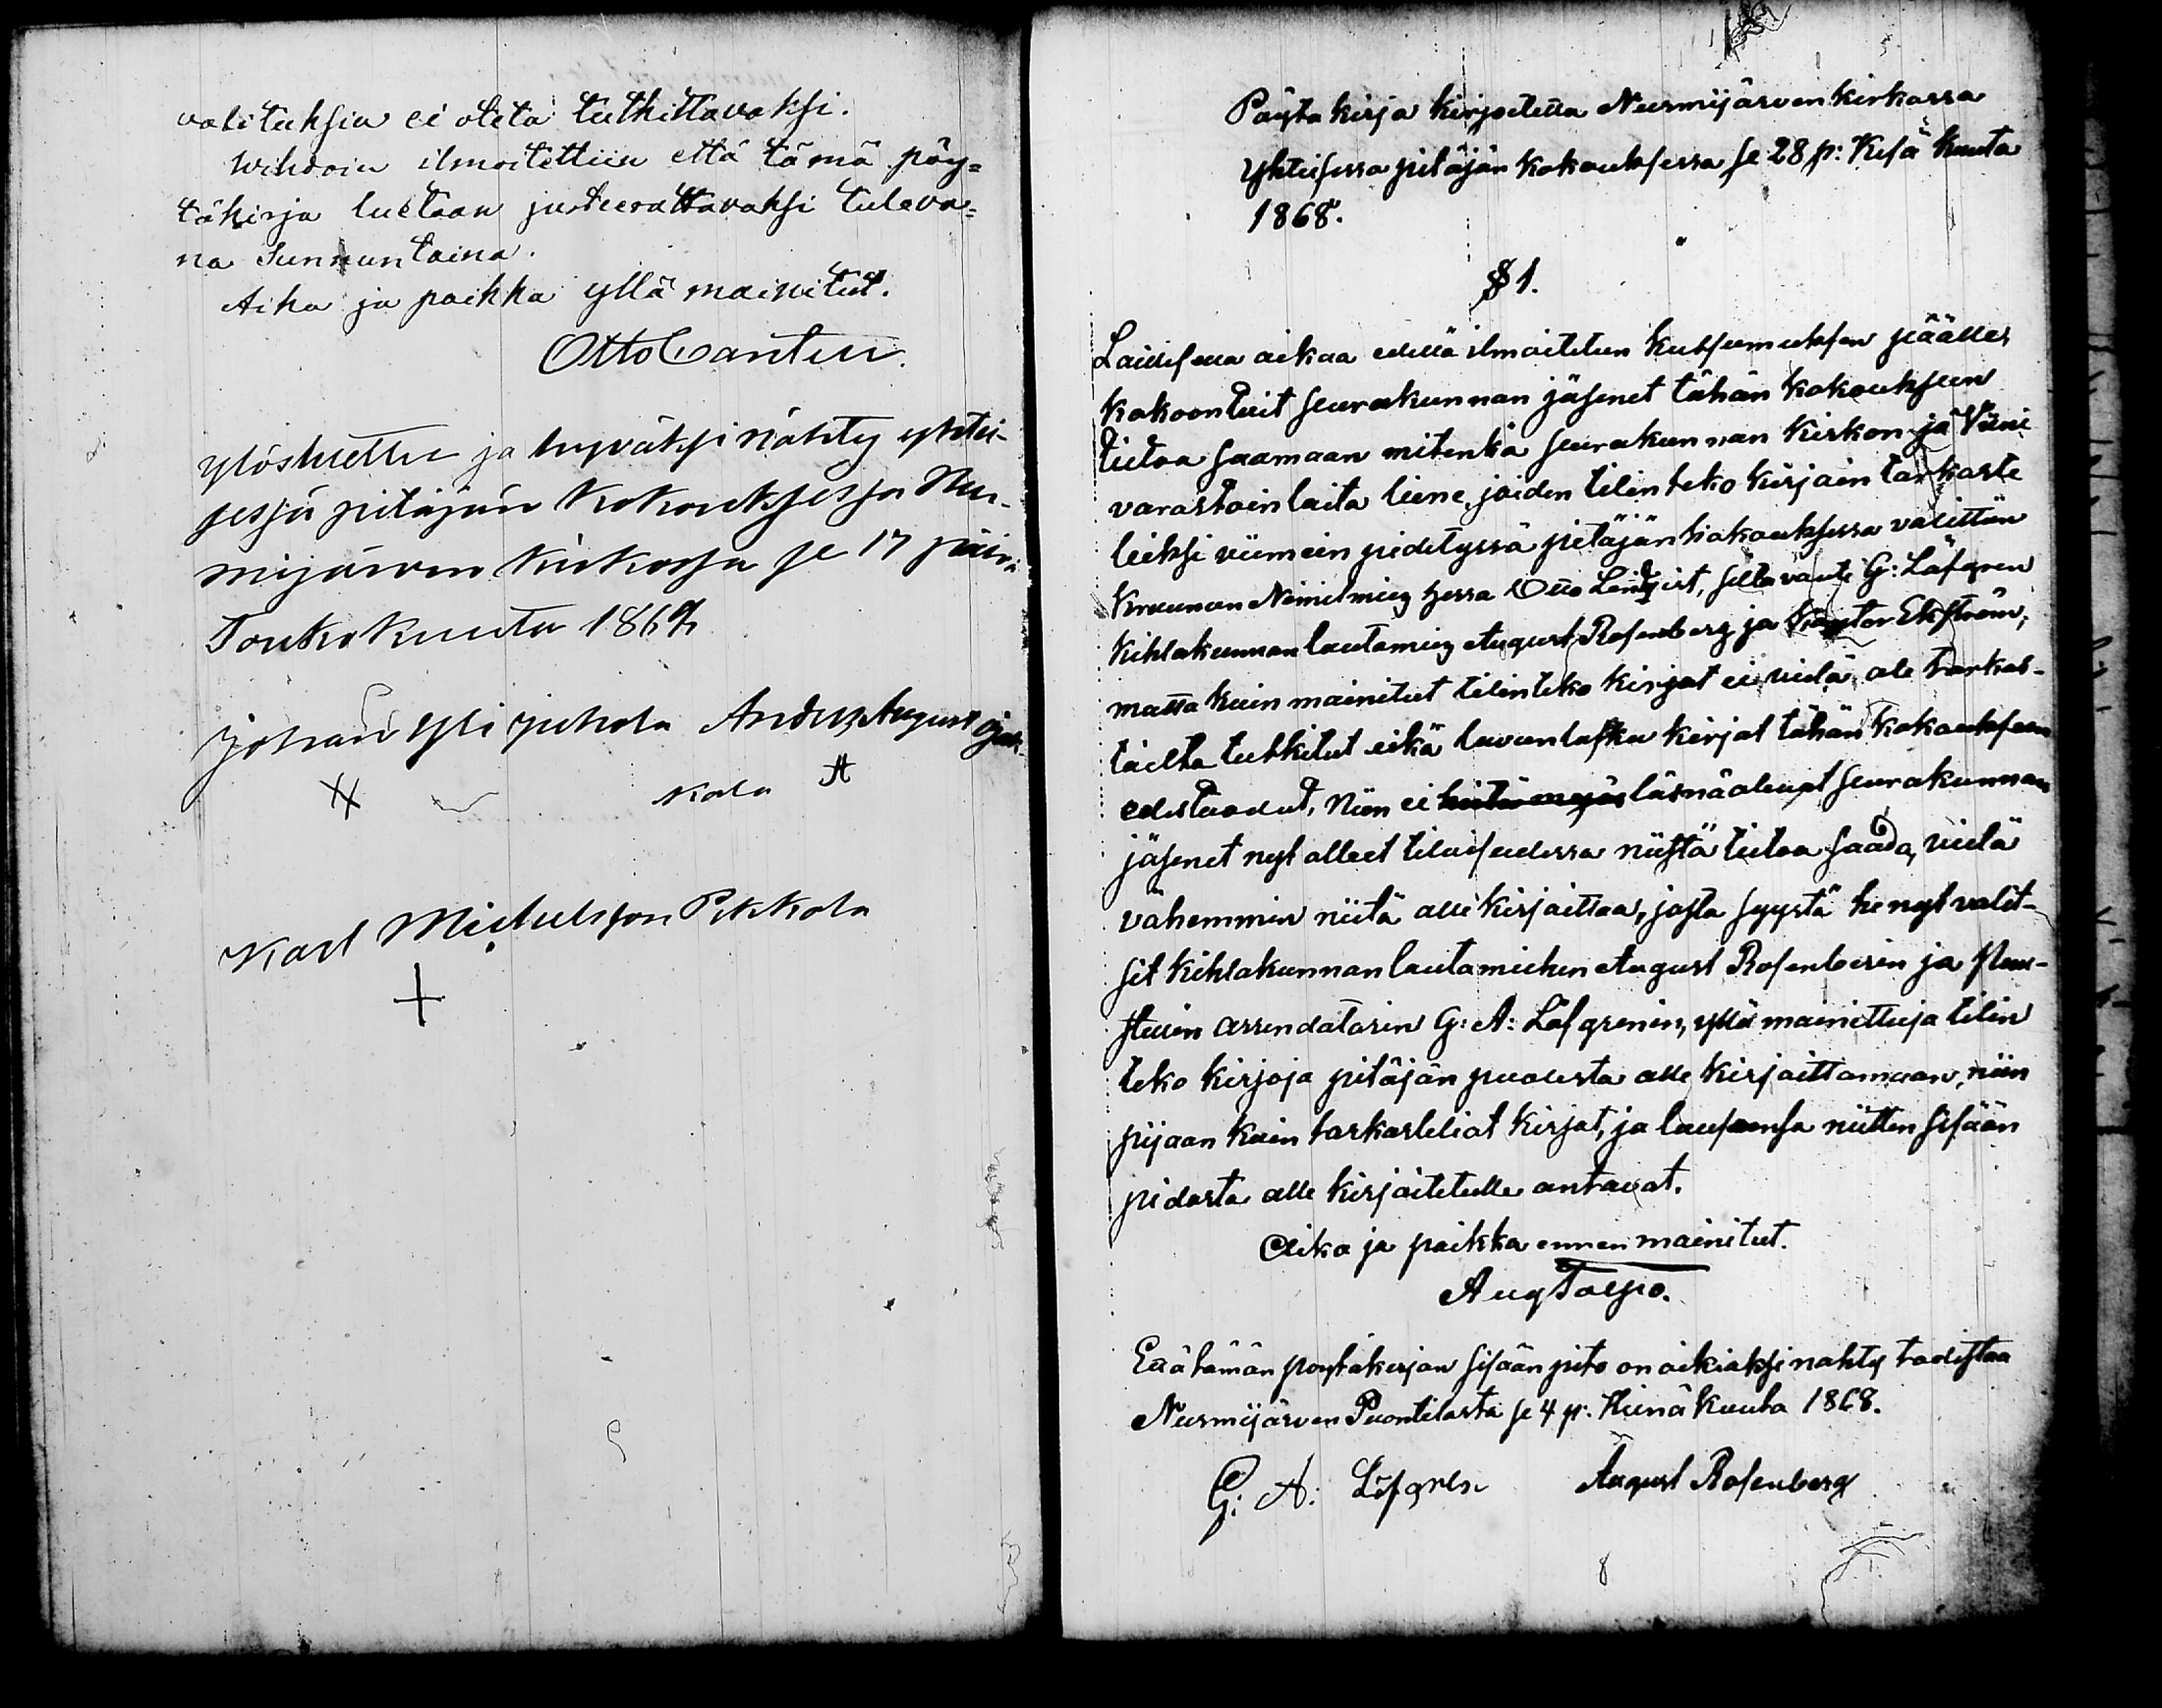 valituksia ei oteta tutkittavaksi.
Wihdoin ilmoitettiin että tämä pöy=
täkirja luetaan justeerattavaksi tuleva=
na Sunnuntaina.
Aika ja paikka yllä mainitut.
Otto Canten.
ylösluettu ja hyväksi nähty yhtei-
sessä pitäjän kokouksessa Nur-
mijärven kirkossa se 17 päiv:
Toukokuuta 1868
Johan Yli juhola Anders August
kola
Karl Michelsson Pikkola
Pöytä kirja kirjoitettu Nurmijärven kirkossa
Yhteisessa pitäjän kokouksessa se 28 p: Kesä kuuta
1868.
§ 1.
Laillisella aikaa edellä ilmoitetun kutsumuksen päälle
kokoontuit seurakunnan jäsenet tähän kokoukseen
tietoa saamaan mitenkä seurakunnan kirkon ja Viini
varastoin laita liene, joiden tilinteko kirjain tarkaste
leiksi viimein pidetyssä pitäjänkokouksessa valittiin
Kruunun Nimitmies herra Otto Lindqist, siltavouti G: Löfgren
kihlakunnan lautamies August Rosenberg ja Kanttor Ekström;
mutta kuin mainitut tilinteko kirjat ei vielä ole tarkas-
täilta tutkitut eikä luvunlasku kirjat tähän kokoukseen
edestuodut, Niin ei läsnäolevat seurakunnan
jäsenet nyt olleet tilaisuudessa niistä tietoa saada, vielä
vähemmin niitä alle kirjoittaa, josta syystä he nyt valit-
sit kihlakunnan lautamiehen August Rosenberin ja Puu-
stellin arrendatorin G: A: Löfgrenin, yllä mainittuja tilin
teko kirjoja pitäjän puolesta alle kirjoittamaan, niin
pijaan kuin tarkasteliat kirjat, ja lausunsa niitten sisään
pidosta alle kirjoitetulle antavat.
Aika ja paikka ennen mainitut.
Aug Taipo.
Että tämän pöytäkirjan sisään pito on oikiaksi nähty todistaa
Nurmijärven Puontilasta se 4 p: Heinä kuuta 1868.
G: A: Löfgren August Rosenberg